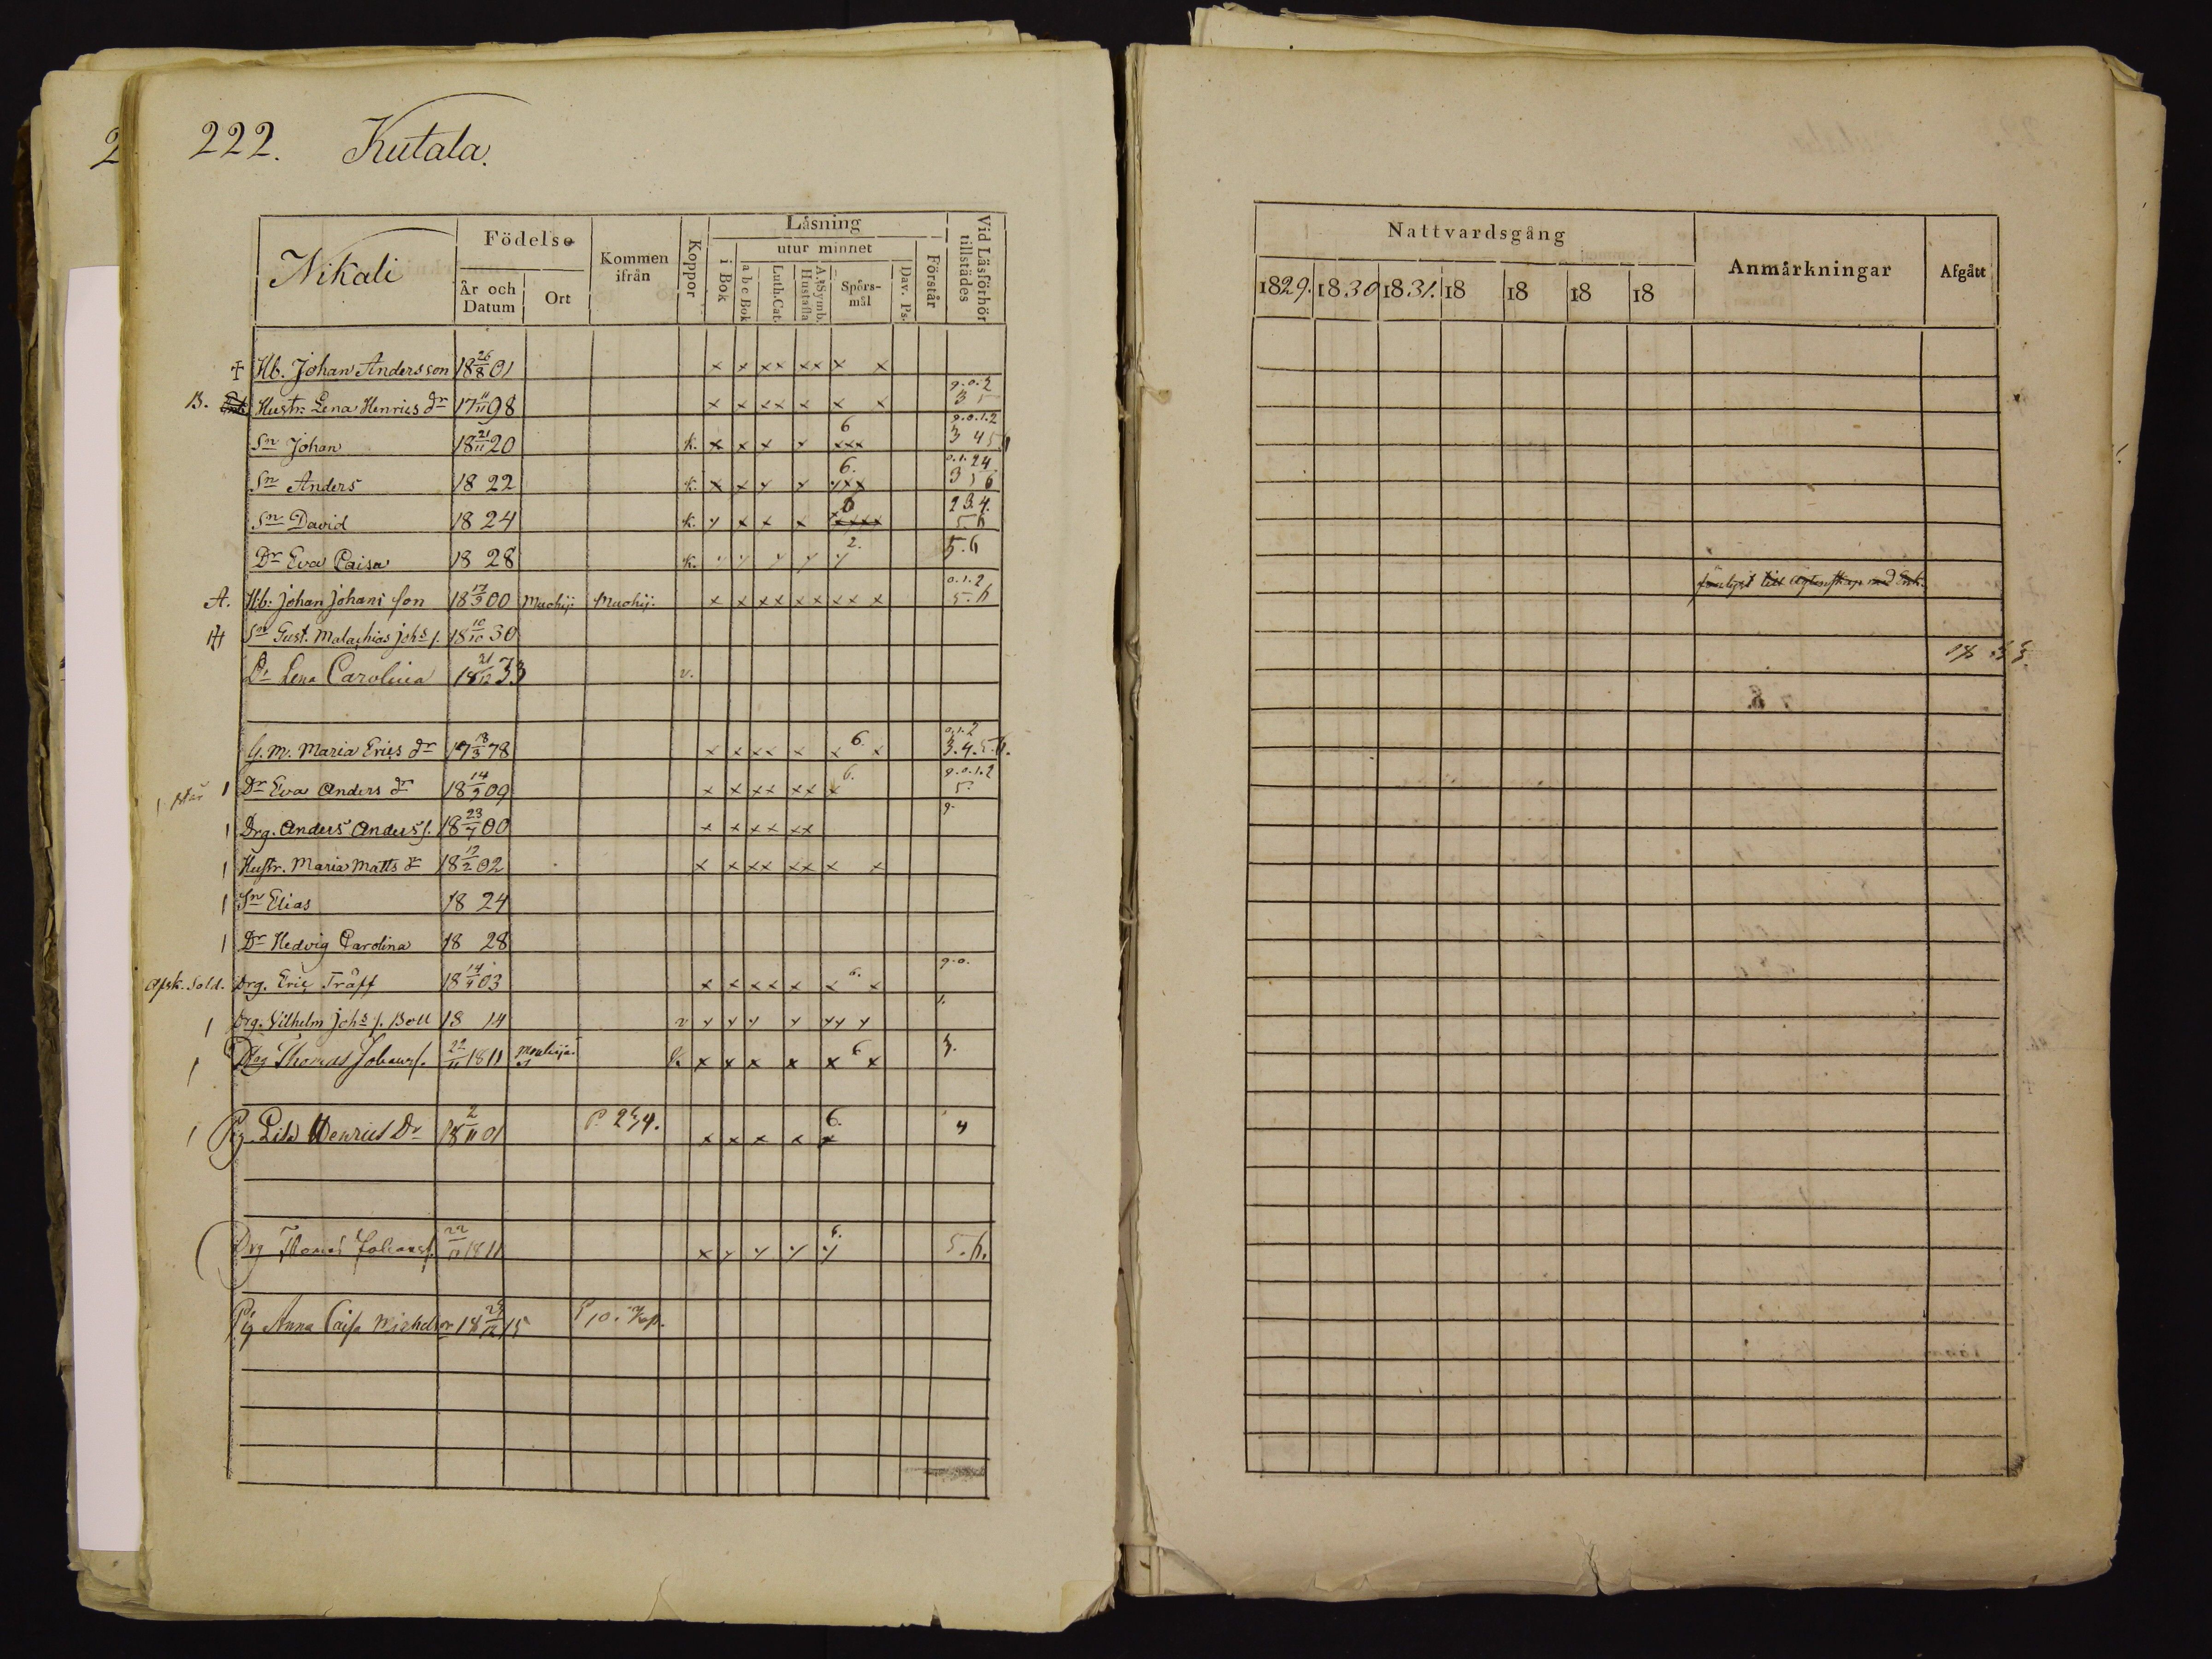 222. Kutala.
Nikali
Födelse
År och Datum
Ort
Kommen ifrån
Koppor
Läsning
i Bok
utur minnet
a b c Bok
Luth. Cat.
A. Symb. Hustafla
Spörs-mål
Dav. Ps.
Förstår
Vid Läsförhör tillstädes
Hb. Johan Andersson 18 26/8 01 x x xx xx x x
B. Hustr: Lena Henrics dr 17 11/11 98 x x xx x x x 9.0.2 3 5
Sn Johan 18 21/11 20 k. x x x x xxx 6 9.0.1.2 3 4 5 6
Sn Anders 18 22 k. x x y x yxx 6. 0.1.24 3 5 6
Sn David 18 24 k. y x x x xxxx 2 3.4. 5.6
Dr Eva Caisa 18 28 k. 2. 5.6
A. Hb: Johan Johans son 18 12/9 00 Machij: Machij: x x xx xx xx x 0.1.2 5.6
Sn Gust. Malachias Johs s. 18 10/10 30
Dr Lena Carolina 18 21/12 33 v.
G. M. Maria Erics dr 17 18/3 78 x x xx x x 6. x 0.1.2 3.4.5.6.
Dr Eva Anders dr 18 14/9 09 x x xx xx x 6. 9.0.1.2 5.
Drg. Anders Anders s. 18 23/7 00 x x xx xx 9.
Hustr. Maria Matts dr 18 19/2 02 x x xx xx x x
Sn Elias 18 24
Dr Hedvig Carolina 18 28
Afsk. Sold. Drg. Eric Träff 18 14/4 03 x x xx x x 6. x 9.0.
Drg. Vilhelm Johs s. Boll 18 14 v y y y y yy y 1.
Drg Thomas Johans s. 22/11 1811 K x x x x x 6 x 3.
Pig. Lisa Henrics Dr 18 2/11 01 P. 234. x x x x x 6. 4
Drg Thomas Johans s. 22/11 1811 x y y y y 6. 5.6.
Pig Anna Caisa Michels dr 18 29/12 15 P 10.
Nattvardsgång
1829. 1830 1831. 18 18 18 18
Anmärkningar
Afgått
till Ägtenskap med Enk.